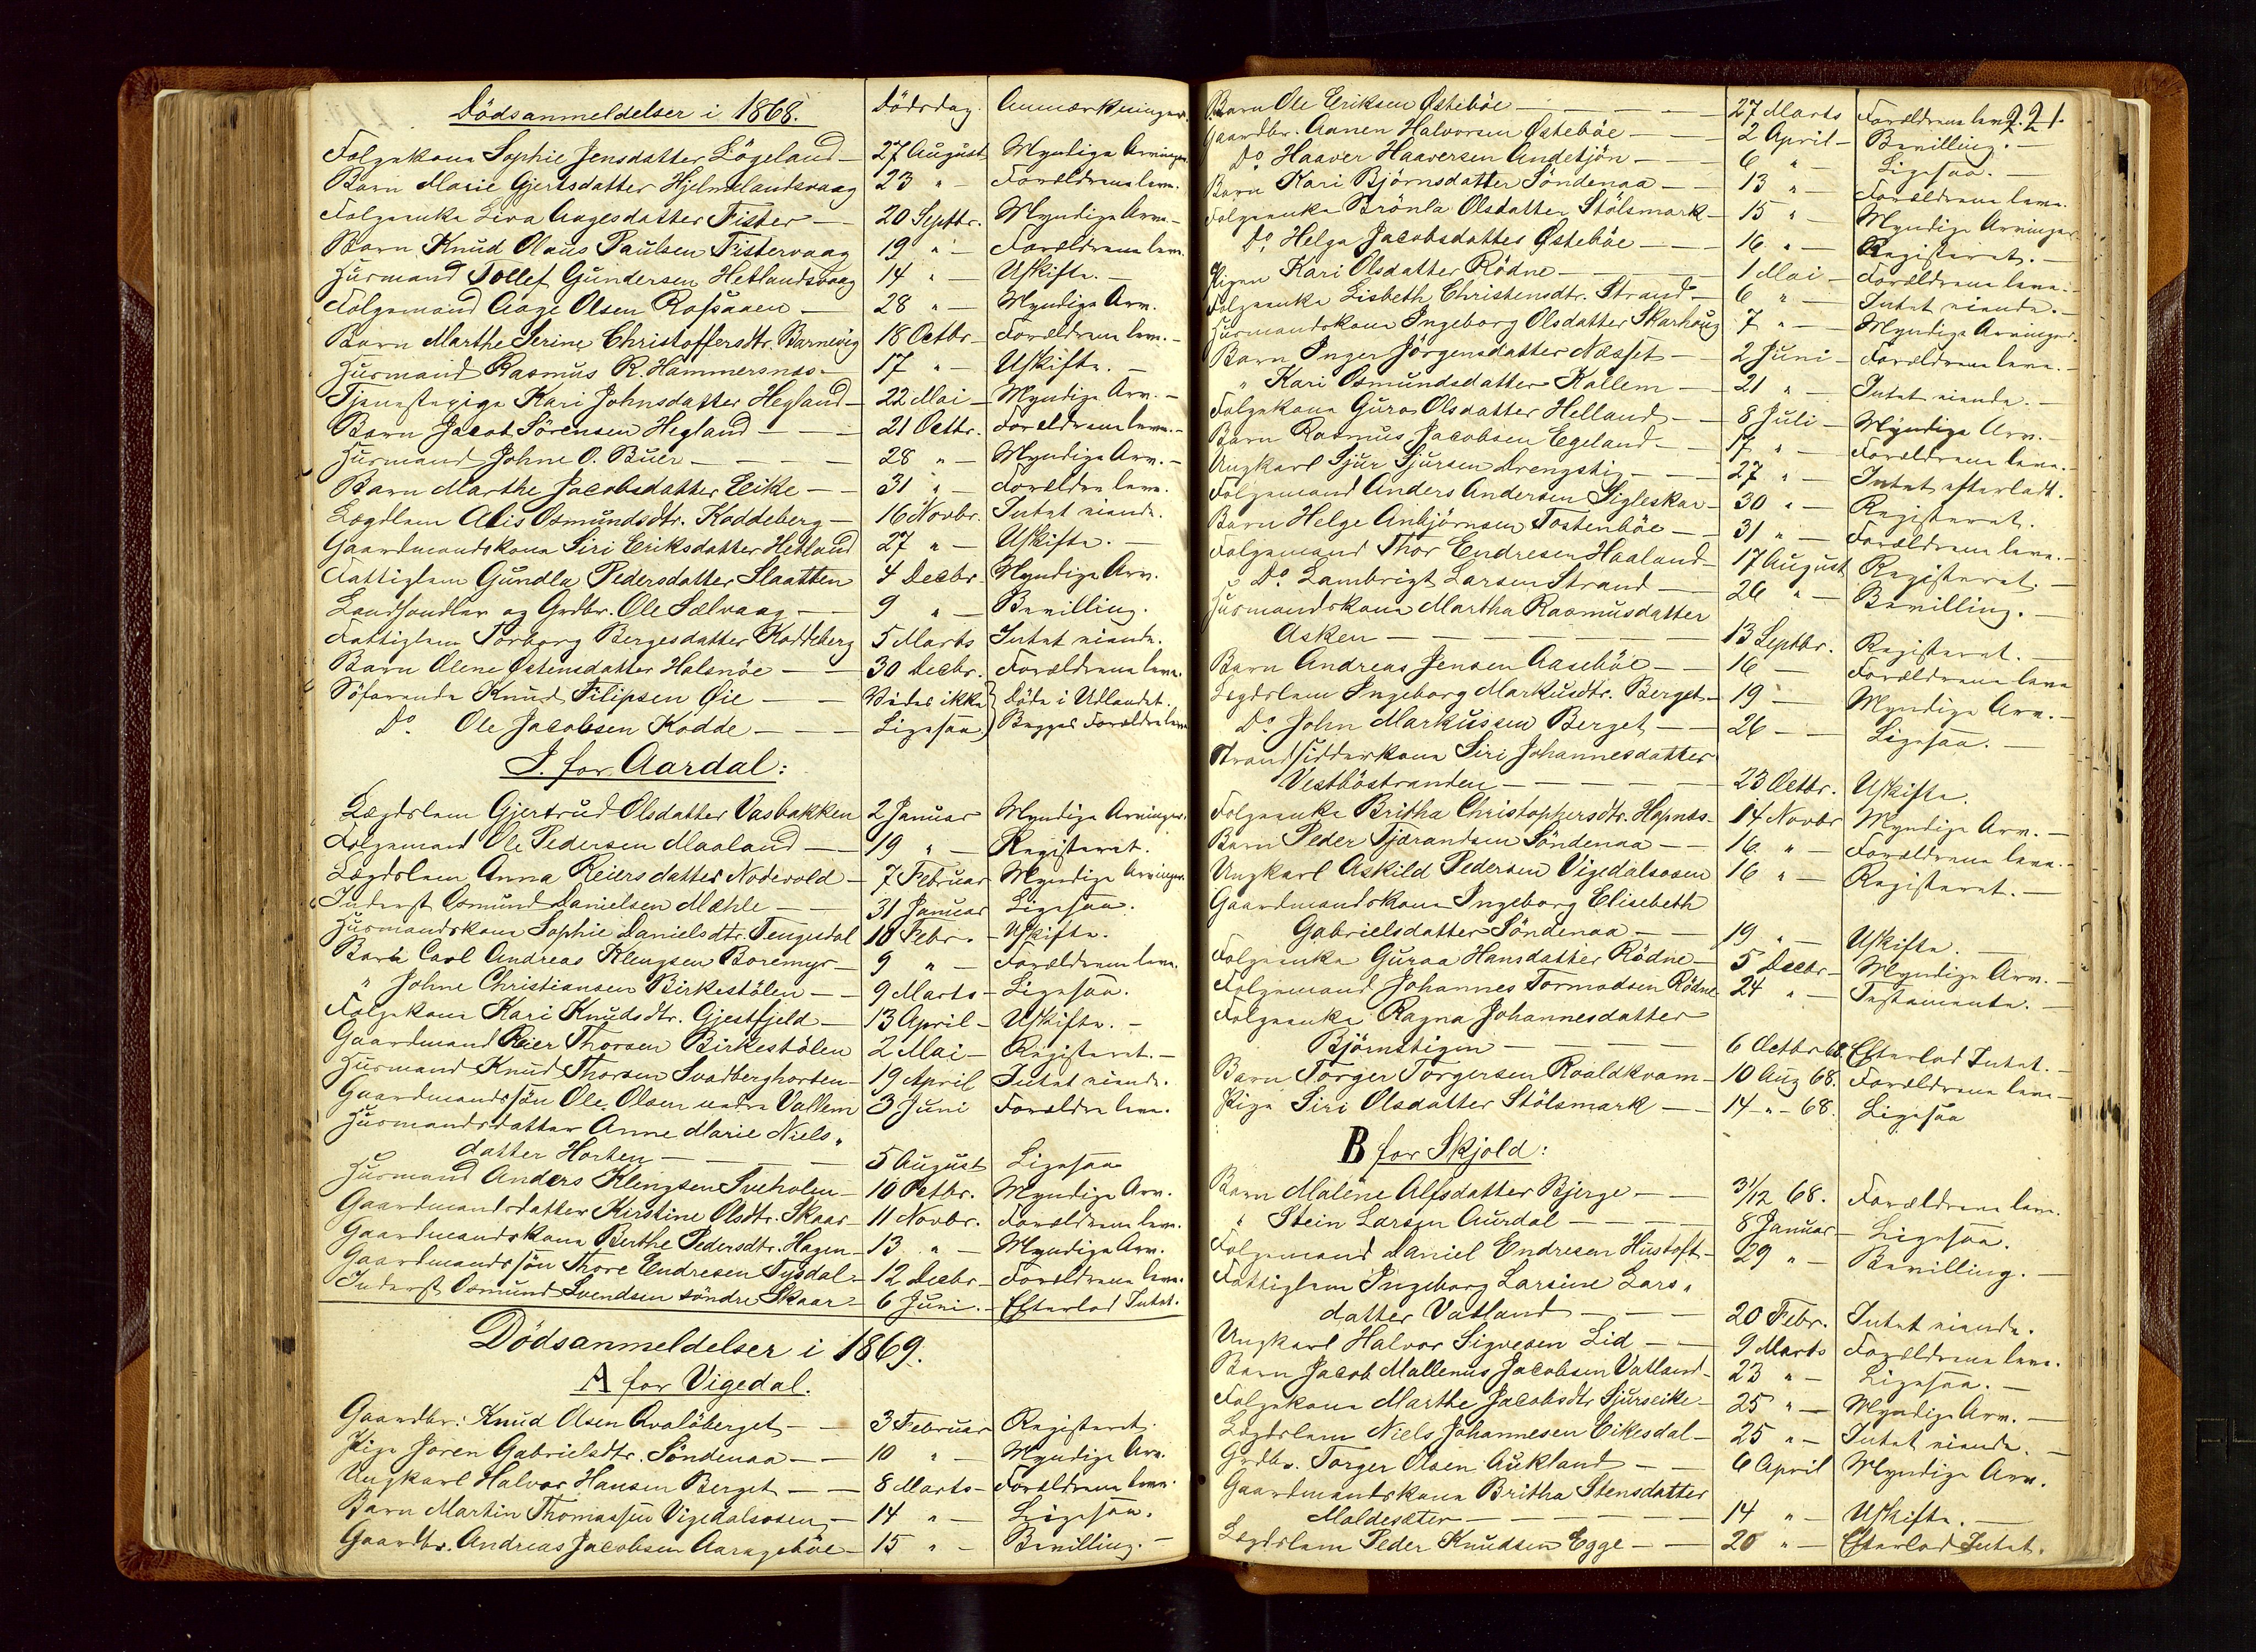 Dödsanmeldelser i 1868. Dödsdag. Anmærkninger.
Folgekone Sophie Jensdatter Lögeland 27 August Myndige Arvinger.
Barn Marie Gjertsdatter Hjelmelandsvaag 23 " Forældrene leve.
Folgeenke Siva Aagesdatter Fister 20 Septbr. Myndige Arv.
Barn Knud Olaus Paulsen Fistervaag 19 " Forældrene leve.
Husmand Tollef Gundersen Hetlandsvaag 14 " Uskifte.
Folgemand Aage Olsen Rossaaen 28 " Myndige Arv.
Barn Marthe Serine Christoffersdtr. Barnevig 18 Octbr. Forældrene leve.
Husmand Rasmus R. Hammersnes 17 " Uskifte.
Tjenestepige Kari Johnsdatter Hegland 22 Mai Myndige Arv.
Barn Jacob Sörensen Hegland 21 Octbr. Forældrene leve.
Husmand Johne O. Buer 28 " Myndige Arv.
Barn Marthe Jacobsdatter Eike 31 " Forældre leve.
Lægdslem Alis Osmundsdtr. Koddeberg 16 Novbr. Intet eiende.
Gaardmandskone Siri Eriksdatter Hetland 27 " Uskifte.
Fattiglem Gundla Pedersdatter Slaatten 4 Decbr. Myndige Arv.
Landhandler og Grdbr. Ole Sælvaag 9 " Bevilling.
Fattiglem Torborg Bergesdatter Koddeberg 5 Marts Intet eiende.
Barn Olene Östensdatter Halsnöe 30 Decbr. Forældrene leve.
Söfarende Knud Filipsen Øie Vides ikke Döde i Udlandet.
Do. Ole Jacobsen Kodde Ligesaa Begges Forældre leve
I. for Aardal:
Lægdslem Gjertrud Olsdatter Vasbakken 2 Januar Myndige Arvinger.
Folgemand Ole Pedersen Maaland 19 " Registeret.
Lægdslem Anna Reiersdatter Nodevold 7 Februar Myndige Arvinger.
Inderst Osmund Danielsen Mæhle 31 Januar Ligesaa.
Husmandskone Sophie Danielsdtr. Tengesdal 10 Febr. Uskifte.
Barn Carl Andreas Klengsen Boremyr 9 " Forældrene leve.
" Johne Christiansen Birkestölen 9 Marts Ligesaa.
Folgekone Kari Knudsdtr. Gjestfjeld 13 April Uskifte.
Gaardmand Reier Thorsen Birkestölen 2 Mai Registeret.
Husmand Knud Thorsen Svadberghorten 19 April Intet eiende.
Gaardmandssön Ole Olsen nedre Vallem 3 Juni Forældre leve.
Husmandsdatter Anne Marie Niels"
datter Horten 5 August Ligesaa
Husmand Anders Klengsen Sveholen 10 Octbr. Myndige Arv.
Gaardmandsdatter Kirstine Olsdtr. Skaar 11 Novbr. Forældrene leve.
Gaardmandskone Berthe Pedersdtr. Hagen 13 " Myndige Arv.
Gaardmandssön Thore Endresen Tysdal 12 Decbr. Forældrene leve.
Inderst Osmund Svendsen söndre Skaar 6 Juni. Efterlod Intet.
Dödsanmeldelser i 1869.
A for Vigedal.
Gaardbr. Knud Olsen Qvalöberget 3 Februar Registeret.
Pige Joren Gabrielsdtr. Söndenaa 10 " Myndige Arv.
Ungkarl Halvor Hansen Berget 8 Marts Forældrene leve.
Barn Martin Thomassen Vigedalsosen 14 " Ligesaa.
Gaardbr. Andreas Jacobsen Aaragebøe 15 " Bevilling.
221.
Barn Ole Eriksen Østebøe 27 Marts Forældrene leve.
Gaardbr. Aanen Halvorsen Østebøe 2 April Bevilling.
Do. Haaver Haaversen Andetjön 6 " Ligesaa.
Barn Kari Björnsdatter Söndenaa 13 " Forældrene leve.
Folgeenke Brönla Olsdatter Stölsmark 15 " Myndige Arvinger.
Do. Helga Jacobsdatter Østebøe 16 " Registeret.
Pigen Kari Olsdatter Rödne 1 Mai Forældrene leve.
Folgeenke Lisbeth Christensdtr. Strand 6 " Intet eiende.
Husmandskone Ingeborg Olsdatter Skarhoug 7 " Myndige Arvinger.
Barn Inger Jörgensdatter Næsset 2 Juni Forældrene leve.
" Kari Osmundsdatter Kallem 21 " Intet eiende.
Folgekone Guro Olsdatter Helland 8 Juli Myndige Arv.
Barn Rasmus Jacobsen Egeland 17 " Forældrene leve.
Ungkarl Sjur Sjursen Drengstig 27 " Intet efterladt.
Folgemand Anders Andersen Sigleskar 30 " Registeret.
Barn Helge Anbjörnsen Tostenbøe 31 " Forældrene leve.
Folgemand Thor Endresen Haaland 17 August Registeret.
Do. Lambrigt Larsen Strand 26 " Bevilling.
Husmandskone Martha Rasmusdatter
Asken 13 Septbr. Registeret.
Barn Andreas Jensen Aasebøe 16 Forældrene leve
Lægdslem Ingeborg Markusdtr. Berget 19 Myndige Arv.
Do. John Markussen Berget 26 Ligesaa.
Strandsidderkone Siri Johannesdatter
Vestböstranden 23 Octbr. Uskifte.
Folgeenke Britha Christophersdtr. Hapnes 14 Novbr. Myndige Arv.
Barn Peder Tjærandsen Söndenaa 16 " Forældrene leve.
Ungkarl Askild Pedersen Vigedalsosen 16 " Registeret.
Gaardmandskone Ingeborg Elisebeth
Gabrielsdatter Söndenaa 19 " Uskifte.
Folgeenke Guraa Hansdatter Rödne 5 Decbr. Myndige Arv.
Folgemand Johannes Tormodsen Rödne 24 " Testamente.
Folgeenke Ragna Johannesdatter
Björnstigen 6 Octbr 68. Efterlod Intet.
Barn Torger Torgersen Roaldkvam 10 Aug 68. Forældrene leve
Pige Siri Olsdatter Stölsmark 14 " 68. Ligesaa
B for Skjold:
Barn Malene Alfsdatter Bjerge 31/12 68. Forældrene leve.
" Stein Larsen Aurdal 8 Januar Ligesaa.
Folgemand Daniel Endresen Hustoft 29 " Bevilling.
Fattiglem Ingeborg Larsine Lars"
datter Vatland 20 Febr. Intet eiende.
Ungkarl Halvor Sigvesen Lid 9 Marts Forældrene leve.
Barn Jacob Mallenus Jacobsen Vatland 23 " Ligesaa.
Folgekone Marthe Jacobsdtr. Sjurseike 25 " Myndige Arv.
Lægdslem Niels Johannesen Eikesdal 25 " Intet eiende.
Grdbr. Torger Olsen Aukland 6 April Myndige Arv.
Gaardmandskone Britha Stensdatter
Moldesæter 14 " Uskifte.
Lægdslem Peder Knudsen Egge 20 " Efterlod Intet.